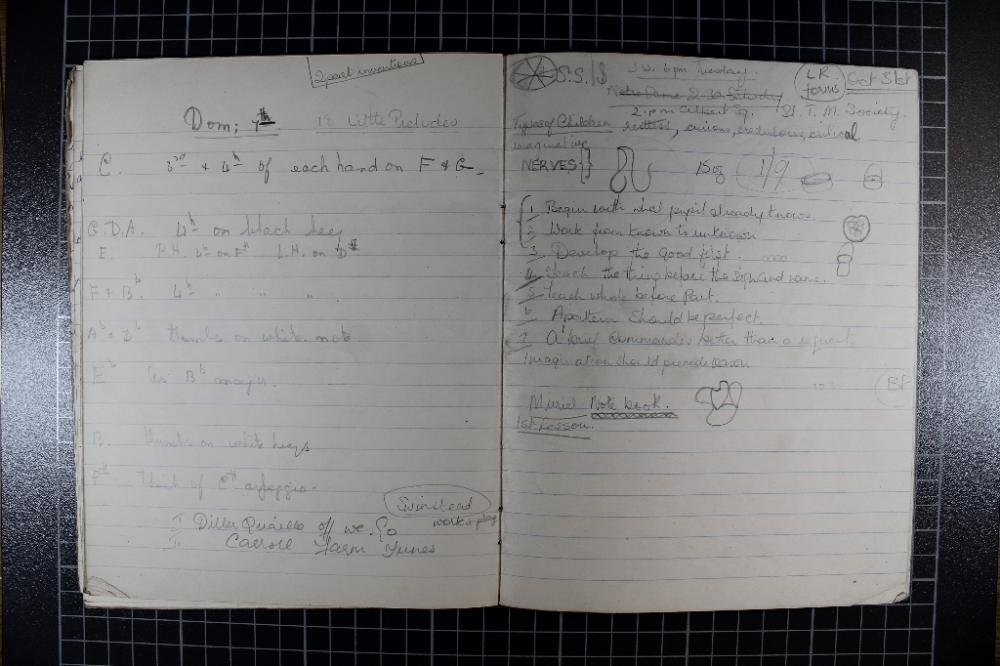 2 part inventions
Dom; 7th 18 Little Preludes
C. 3rd & 4th of each hand on F & G.
G.D.A. 4th on black key
E. R.H. 4th on F# L.H. on D#
F & Bb. 4th " " "
Ab & Db thumbs on white note
Eb as Bb major.
B. thumbs on white keys
F# Think of C# arpeggio.
Swinstead
work & play
I Diller Quaile off we go
II Carroll Farm Tunes
S.S./S J.W. 6 pm Tuesday. L.R. forms Oct 31st
Notre Dame 2.30 Saturday
2. p.m Albert Sq. U. T. M. Society.
Types of Children restless, curious, credulous, critical
imaginative
NERVES} 15 og 1/9
1 Begin with what pupil already knows.
2. Work from known to unknown
3. Develop the good first.
4. Teach the thing before the sign and name.
5. Teach whole before Part.
6 A pattern should be perfect.
7. A brief command is better than a request.
Imagination should precede reason
BP
Muriel Note book.
1st Lesson.